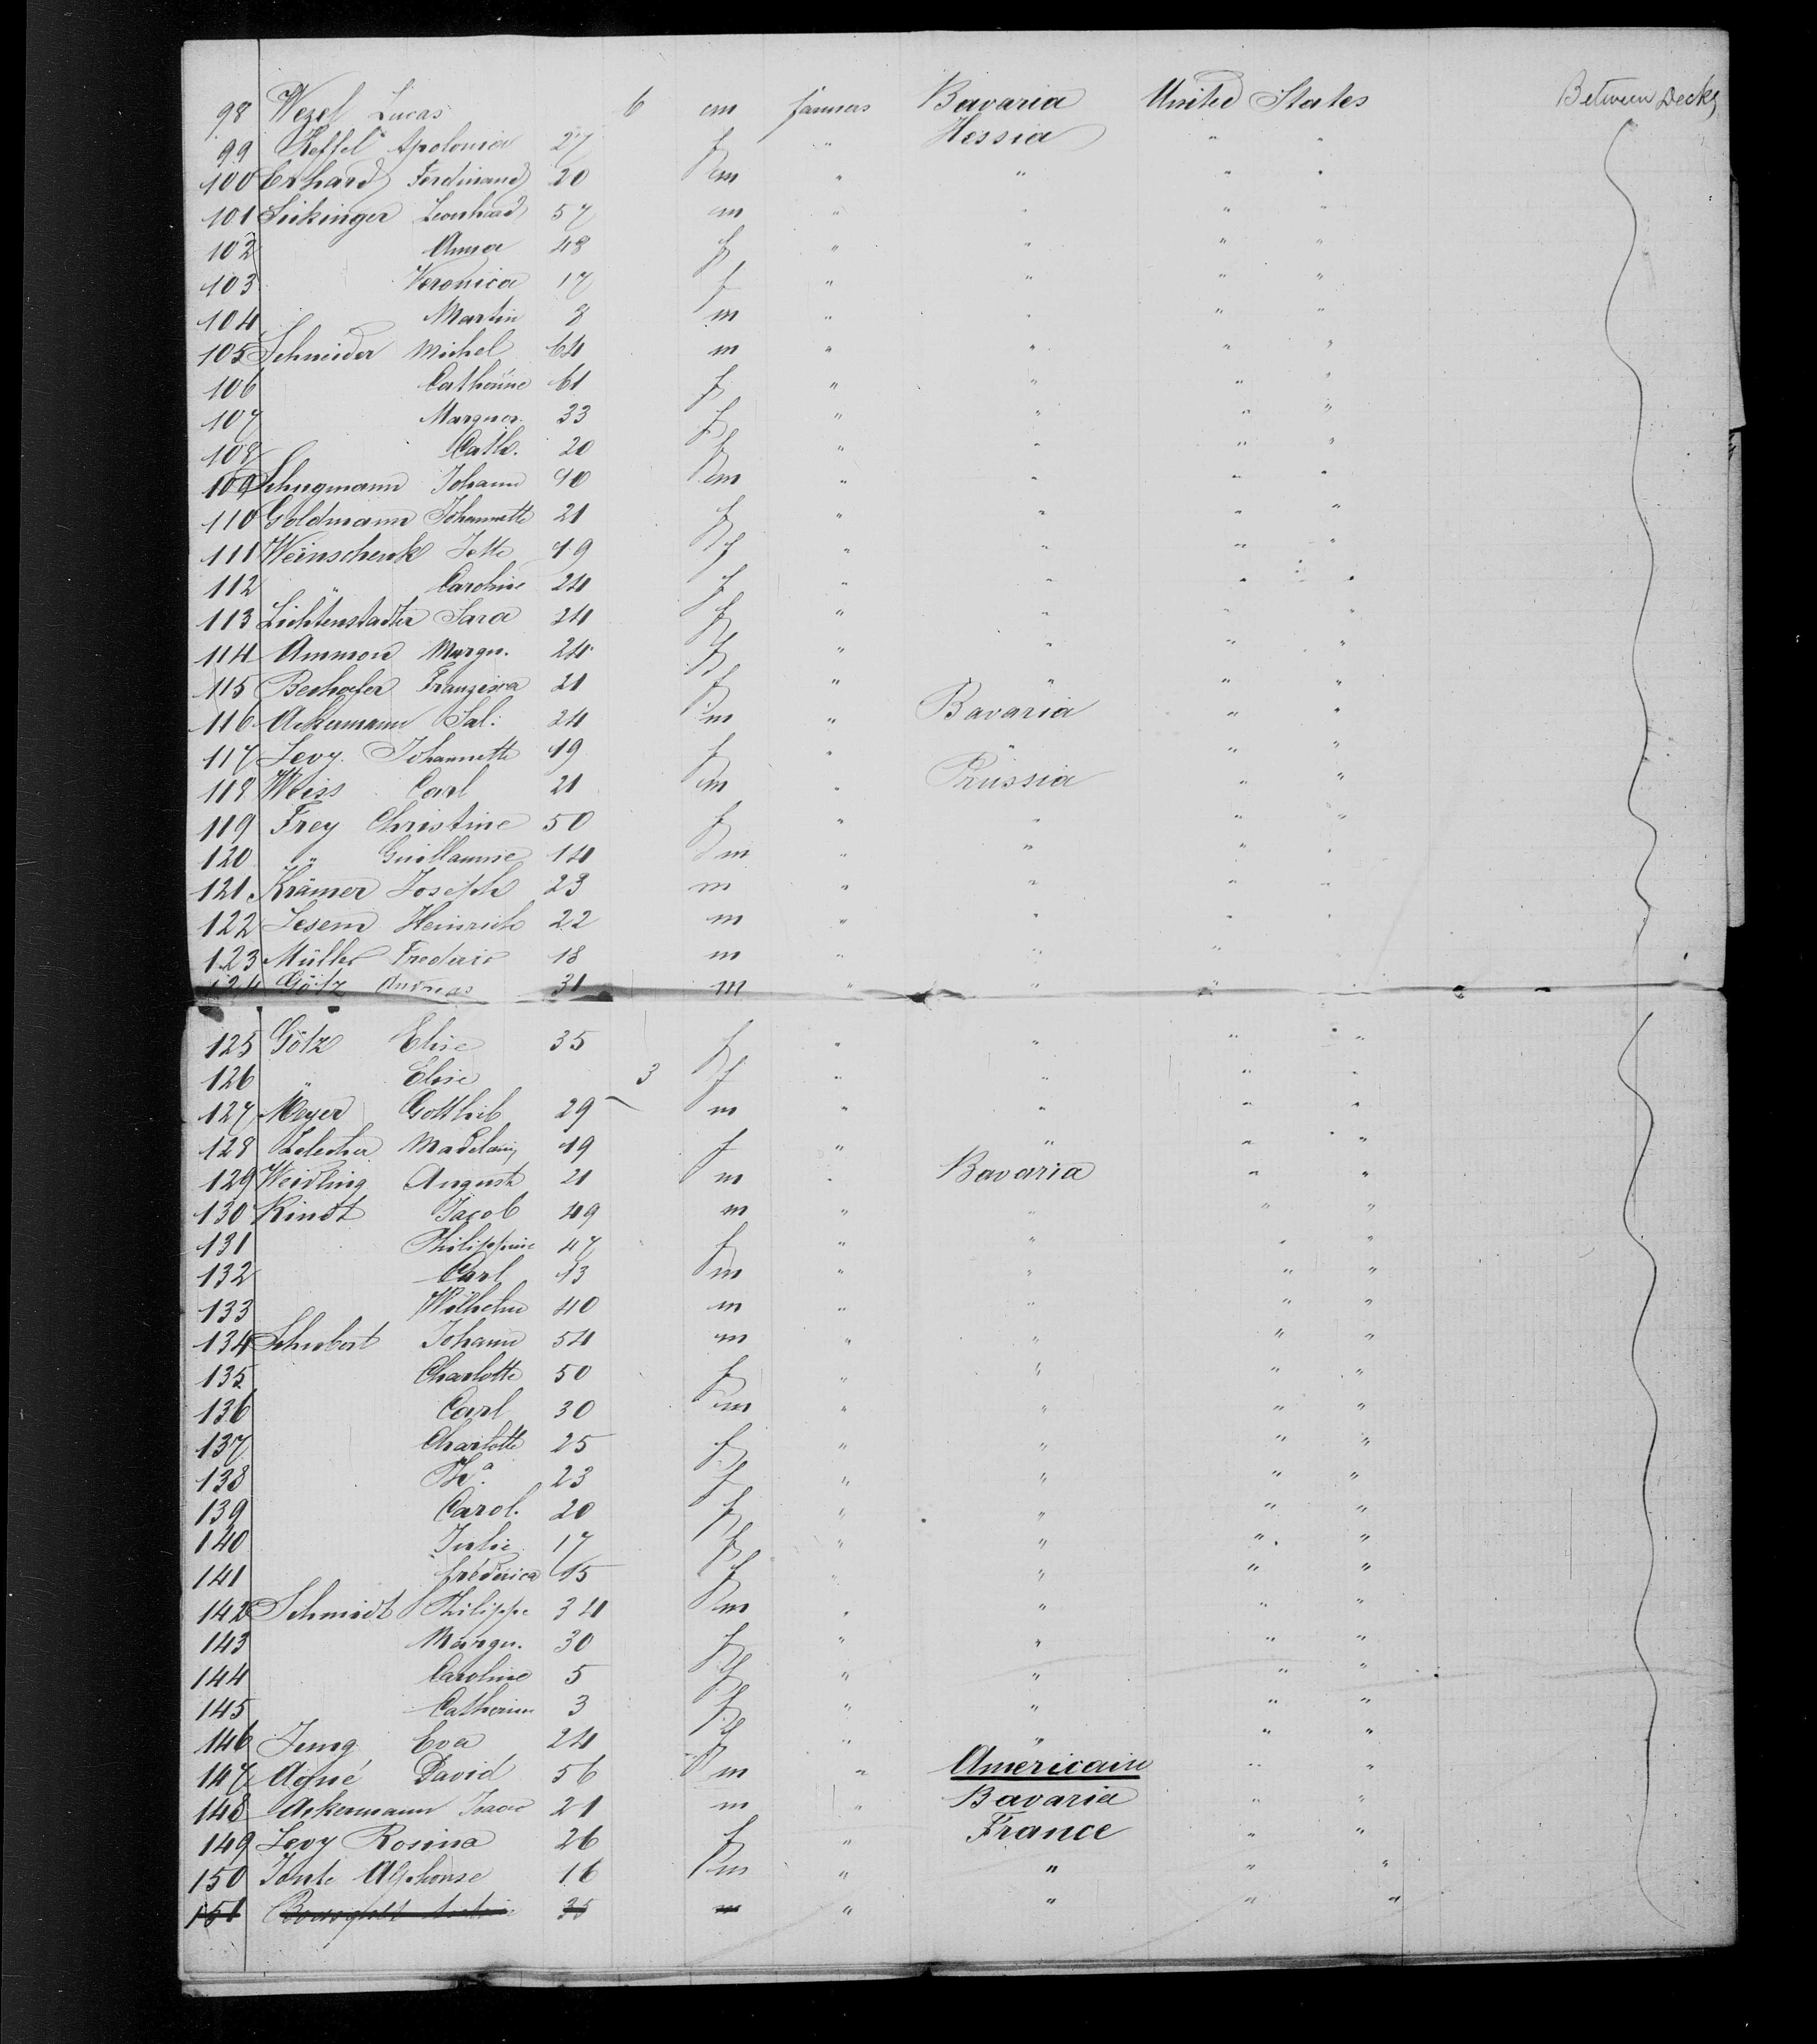 98 Wezel Lucas 6 m farmers Bavaria United States Between Decks
99 Keffel Apolonia 27 f " Hessia " "
100 Erhard Ferdinand 20 m " " " "
101 Sickinger Leonhard 57 m " " " "
102 Anna 48 f " " " "
103 Veronica 17 f " " " "
104 Martin 8 m " " " "
105 Schneider Michel 64 m " " " "
106 Catherine 61 f " " " "
107 Margner. 33 f " " " "
108 Cath. 20 f " " " "
109 Johann 40 m " " " "
110 Goldmann Johannette 21 f " " " "
111 Weinschenk Jette 19 f " " " "
112 " Caroline 24 f " " " "
113 Lichtenstadter Sara 24 f " " " "
114 Ammon Margu. 24 f " " " "
115 Bechofer Franzisca 21 f " " " "
116 Ackermann Sal. 24 m " Bavaria " "
117 Levy Johannette 19 f " " " "
118 Weiss Carl 21 m " Prussia " "
119 Frey Christine 50 f " " " "
120 " Guillaume 14 m " " " "
121 Krämer Joseph 23 m " " " "
122 Lesem Heinrich 22 m " " " "
123 Müller Frederic 18 m " " " "
124 Götz Andreas 31 m " " " "
125 Götz Elise 35 f " " " "
126 " Elise 3 f " " " "
127 Meyer Gottlieb 29 m " " " "
128 19 f " " " "
129 Weidling August 21 m " Bavaria " "
130 Kindt Jacob 49 m " " " "
131 Philippine 47 f " " " "
132 Carl 13 m " " " "
133 Wilhelm 40 m " " " "
134 Schubert Johann 54 m " " " "
135 Charlotte 50 f " " " "
136 Carl 30 m " " " "
137 Charlotte 25 f " " " "
138 23 f " " " "
139 Carol. 20 f " " " "
140 Julie 17 f " " " "
141 fréderica 15 f " " " "
142 Schmidt Philippe 34 m " " " "
143 Margu. 30 f " " " "
144 Caroline 5 f " " " "
145 Catherine 3 f " " " "
146 Jung Eva 24 f " " " "
147 Agné David 56 m " Americain " "
148 Ackermann Isaac 21 m " Bavaria " "
149 Levy Rosina 26 f " France " "
150 Alphonse 16 m " " " "
151 35 m " " " "